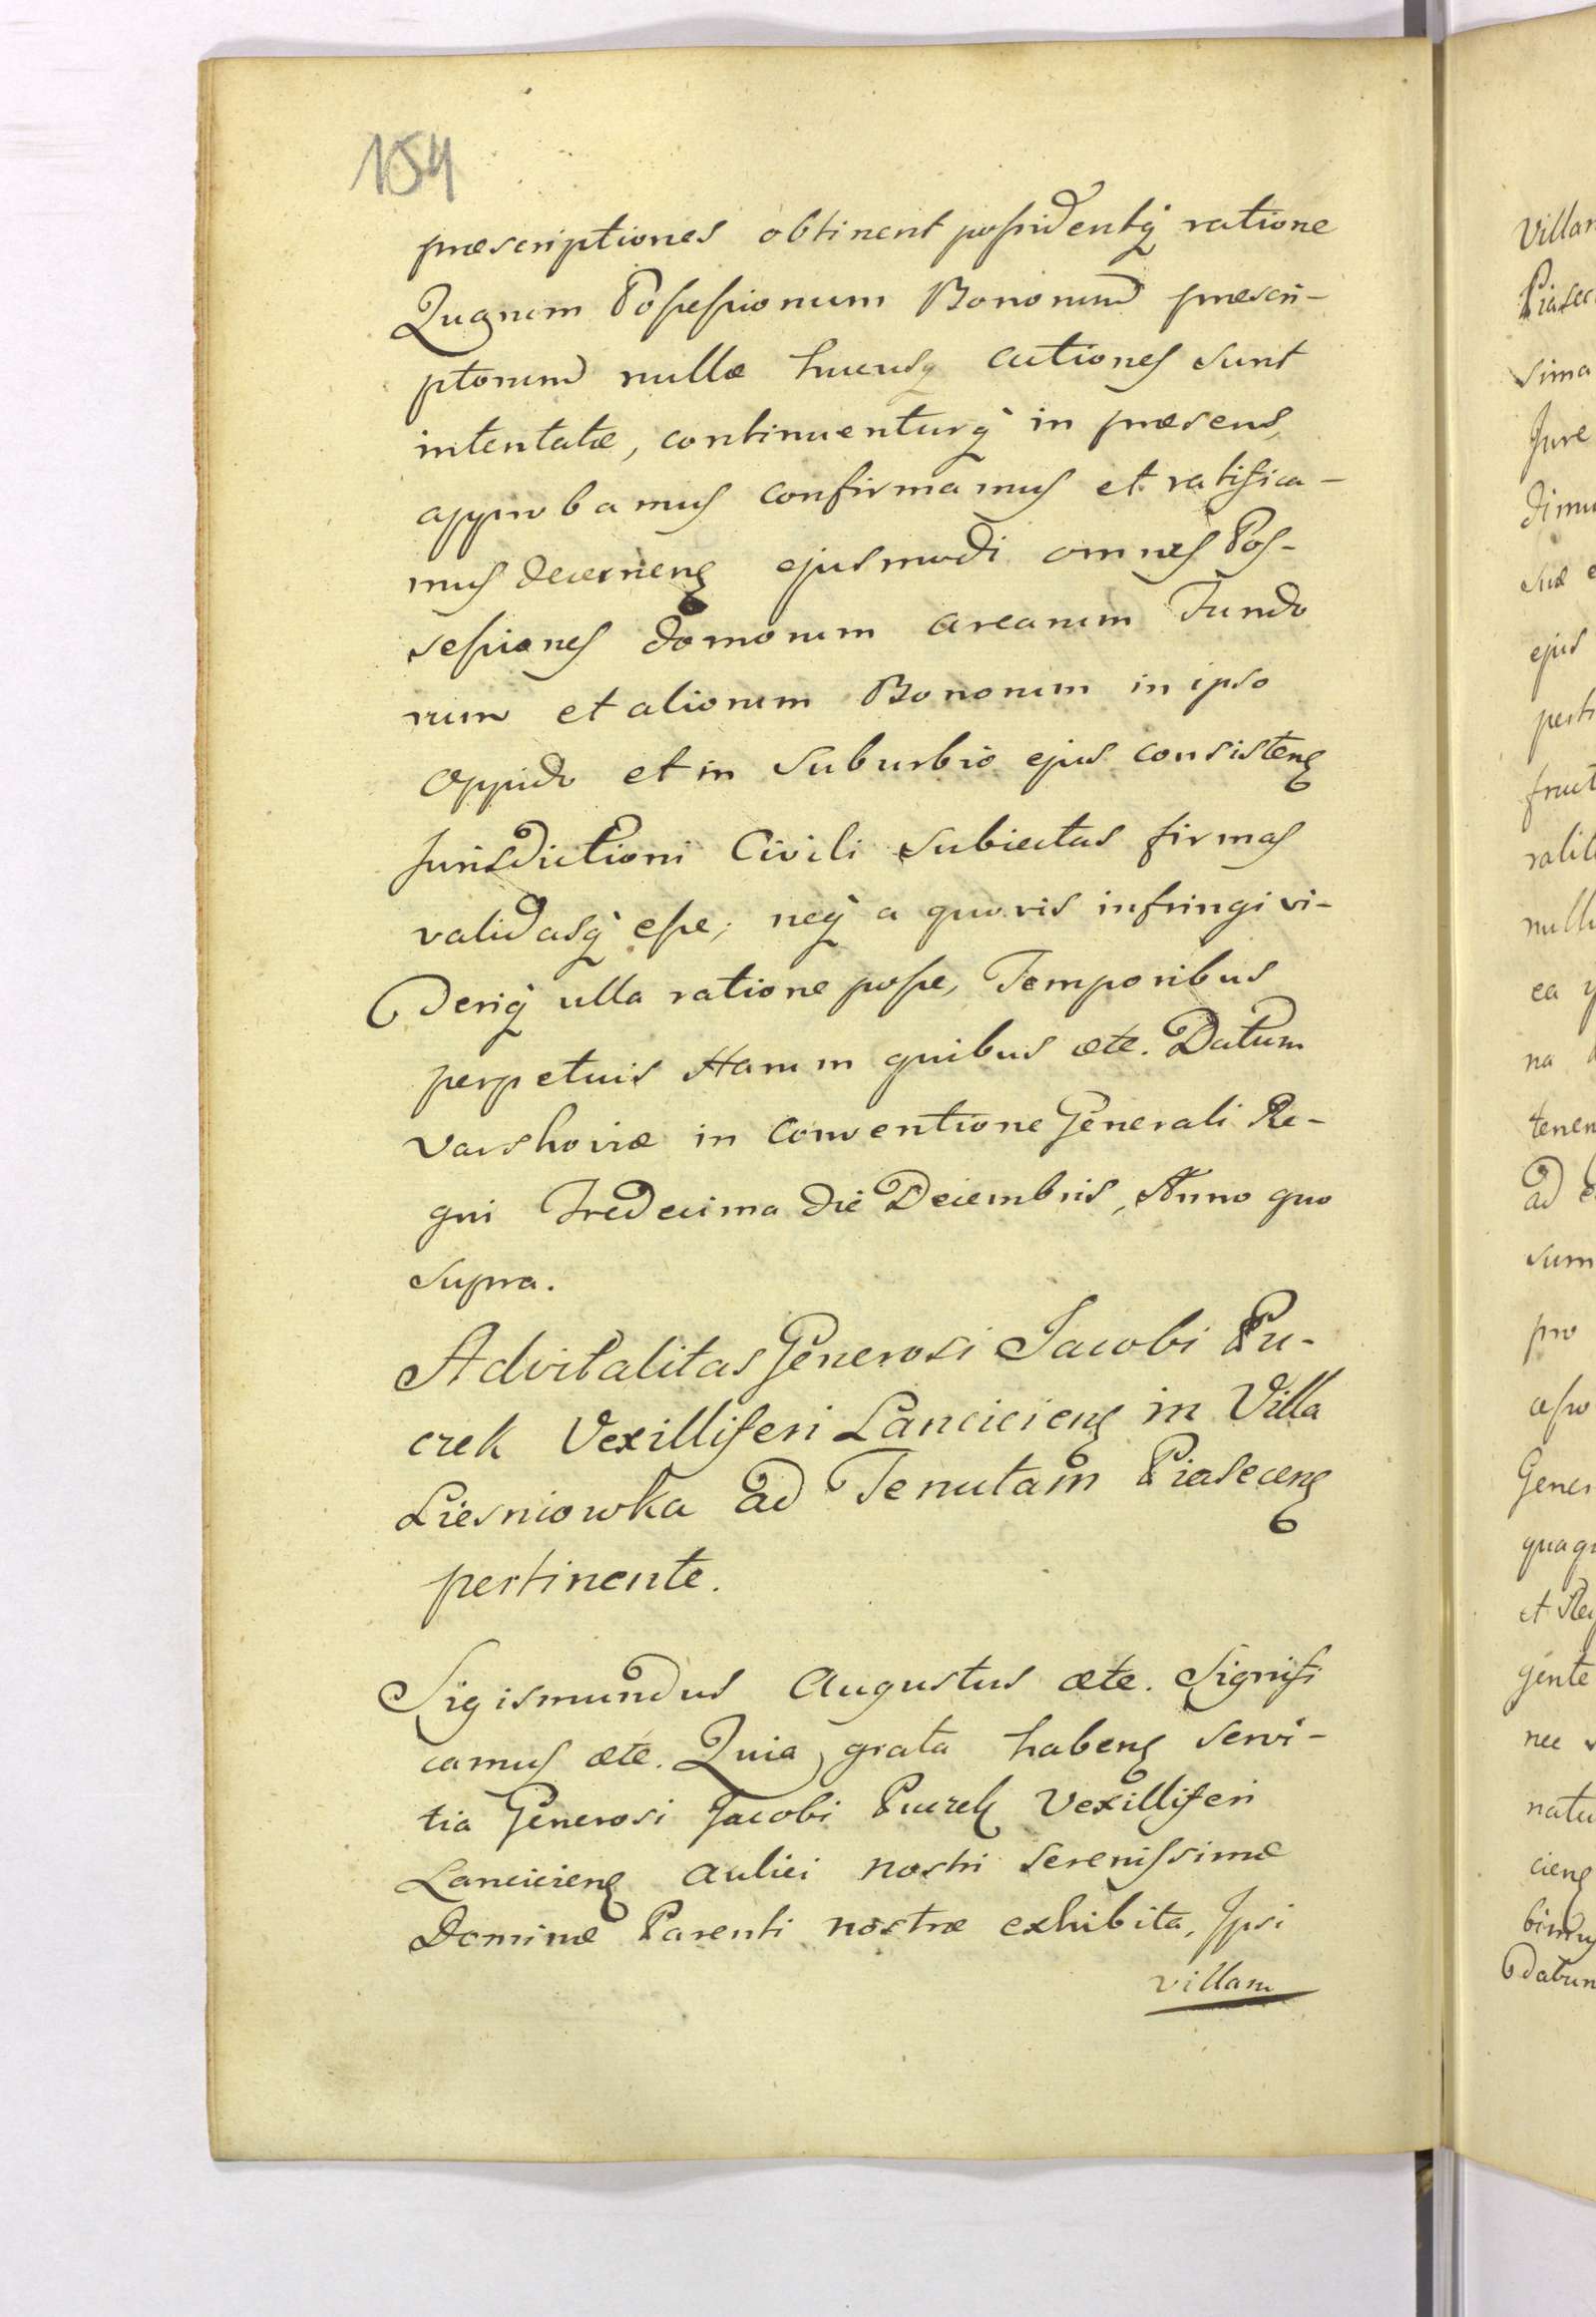 154
præscriptiones obtinent possidentq̃ ratione
Quarum Possessionum Bonorum præscri-
ptorum nullæ hucusq̃ actiones sunt
intentatæ, continuenturq̃ in præsens,
approbamus confirmamus et ratifica-
mus decernenꝭ ejusmodi omnes Pos-
sessiones domorum arearum Fundo
rum et aliorum Bonorum in ipso
oppido et in Suburbio ejus consistenꝭ
Jurisdictioni Civili Subiectas firmas
validasq̃ esse; neq̃ a quovis infringi vi-
deriq̃ ulla ratione posse, Temporibus
perpetuis Harum quibus ætc. Datum
Varshoviæ in Conventione Generali Re-
gni Tredecima die Decembris, Anno quo
supra.
Advitalitas Generosi Jacobi Pu-
crek Vexilliferi Lancicienꝭ in Villa
Liesniowka ad Tenutam Piasecenꝭ
pertinente.
Sigismundus Augustus ætc. Signifi
camus ætc. Quia grata habenꝭ servi-
tia Generosi Jacobi Pucrek Vexilliferi
Lancicienꝭ aulici nostri Serenissimæ
Dominæ Parenti nostræ exhibita, Ipsi
villam
Villam
Piasec
sima
Jure
dimu
suæ e
ejus
perti
fruct
ralit
nullu
ea
na
tenen
ad
sum
pro
Gener
et Re
gente
nec
natu
cienꝭ
Datum